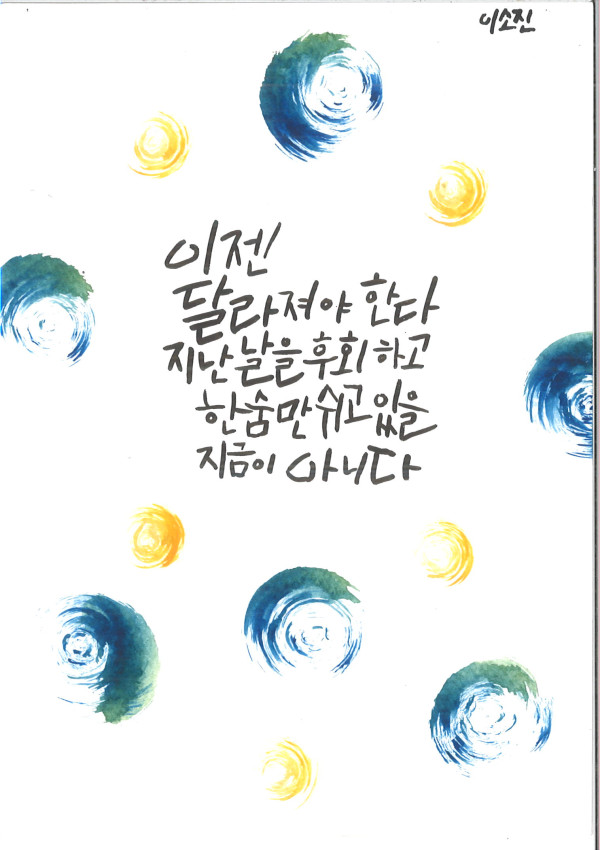 이소진
이젠
달라져야 한다
지난 날을 후회하고
한숨만 쉬고 있을
지금이 아니다